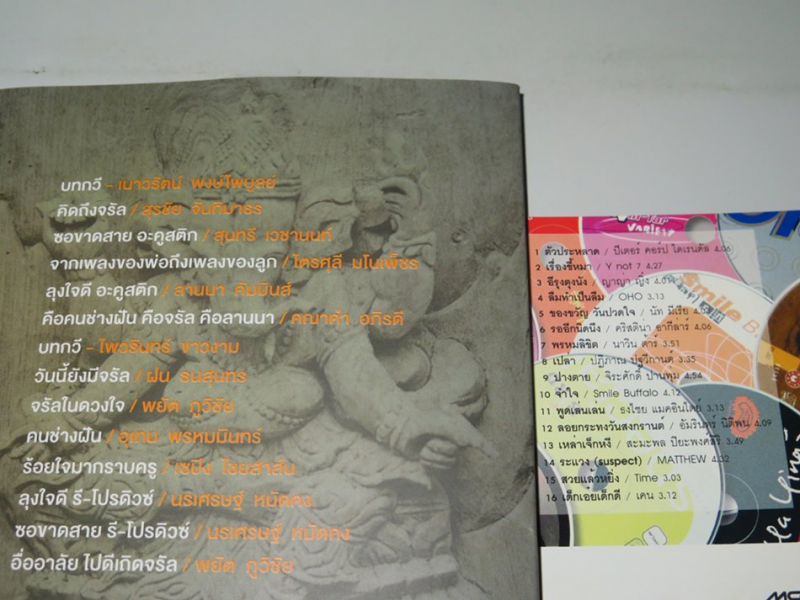 บทกวี - เนาวรัตน์ พงษ์ไพบูลย์
คิดถึงจรัล / สุรชัย จันทิมาธร
ซอขาดสาย อะคูสติก / สุนทรี เวชานนท์
จากเพลงของพ่อถึงเพลงของลูก / ไตรศุลี มโนเพ็ชร
ลุงใจดี อะคูสติก / ลานนา คัมมินส์
คือคนช่างฝัน คือจรัล คือลานนา / คณาคำ อภิรดี
บทกวี - ไพวรินทร์ ขาวงาม
วันนี้ยังมีจรัล / ฝน ธนสุนทร
จรัลในดวงใจ / พยัต ภูวิชัย
คนช่างฝัน / อุเทน พรหมมินทร์
ร้อยใจมากราบครู / เซปิง ไชยสาส์น
ลุงใจดี รี-โปรดิวซ์ / นริเศรษฐ์ หมัดคง
ซอขาดสาย รี-โปรดิวซ์ / นรเศรษฐ์ หมัดคง
อื่ออาลัย ไปดีเถิดจรัล / พยัต ภูวิชัย
VARIETY
1 ตัวประหลาด / ปีเตอร์ คอร์ป ไดเรนดัล 4.06
2 เรื่องขี้หมา / Y not 7 4.27
3 อีรุงตุงนัง / ญาญ่า ญิ๋ง
4 ลืมทำเป็นลืม / OHO 3.13
5 ของขวัญ วันปวดใจ / นัท มีเรีย
6 รออีกนิดนึง / คริสติน่า อากีล่าร์ 4.06
7 พรหมลิขิต / นาวิน ต้าร์ 3.51
8 เปลา / ปฏิภาณ ปฐวีกานต์ 3.35
9 ปางตาย / จิระศักดิ์ ปานพุ่ม 4.54
10 จำใจ / Smile Buffalo 4.12
11 พูดเล่นเล่น / ธงไชย แมคอินไตย์ 3.13
12 ลอยกระทงวันสงกรานต์ / อัมรินทร์ นิติพน 4.09
13 เหล่าเจ็กหงี / สะมะพล ปิยะพงศ์สิริ 3.49
14 ระแวง (suspect) / MATTHEW 4.32
15 สวยแล้วหยิ่ง / Time 3.03
16 เด็กเอ๋ยเด็กดี / เคน 3.12
Smile B